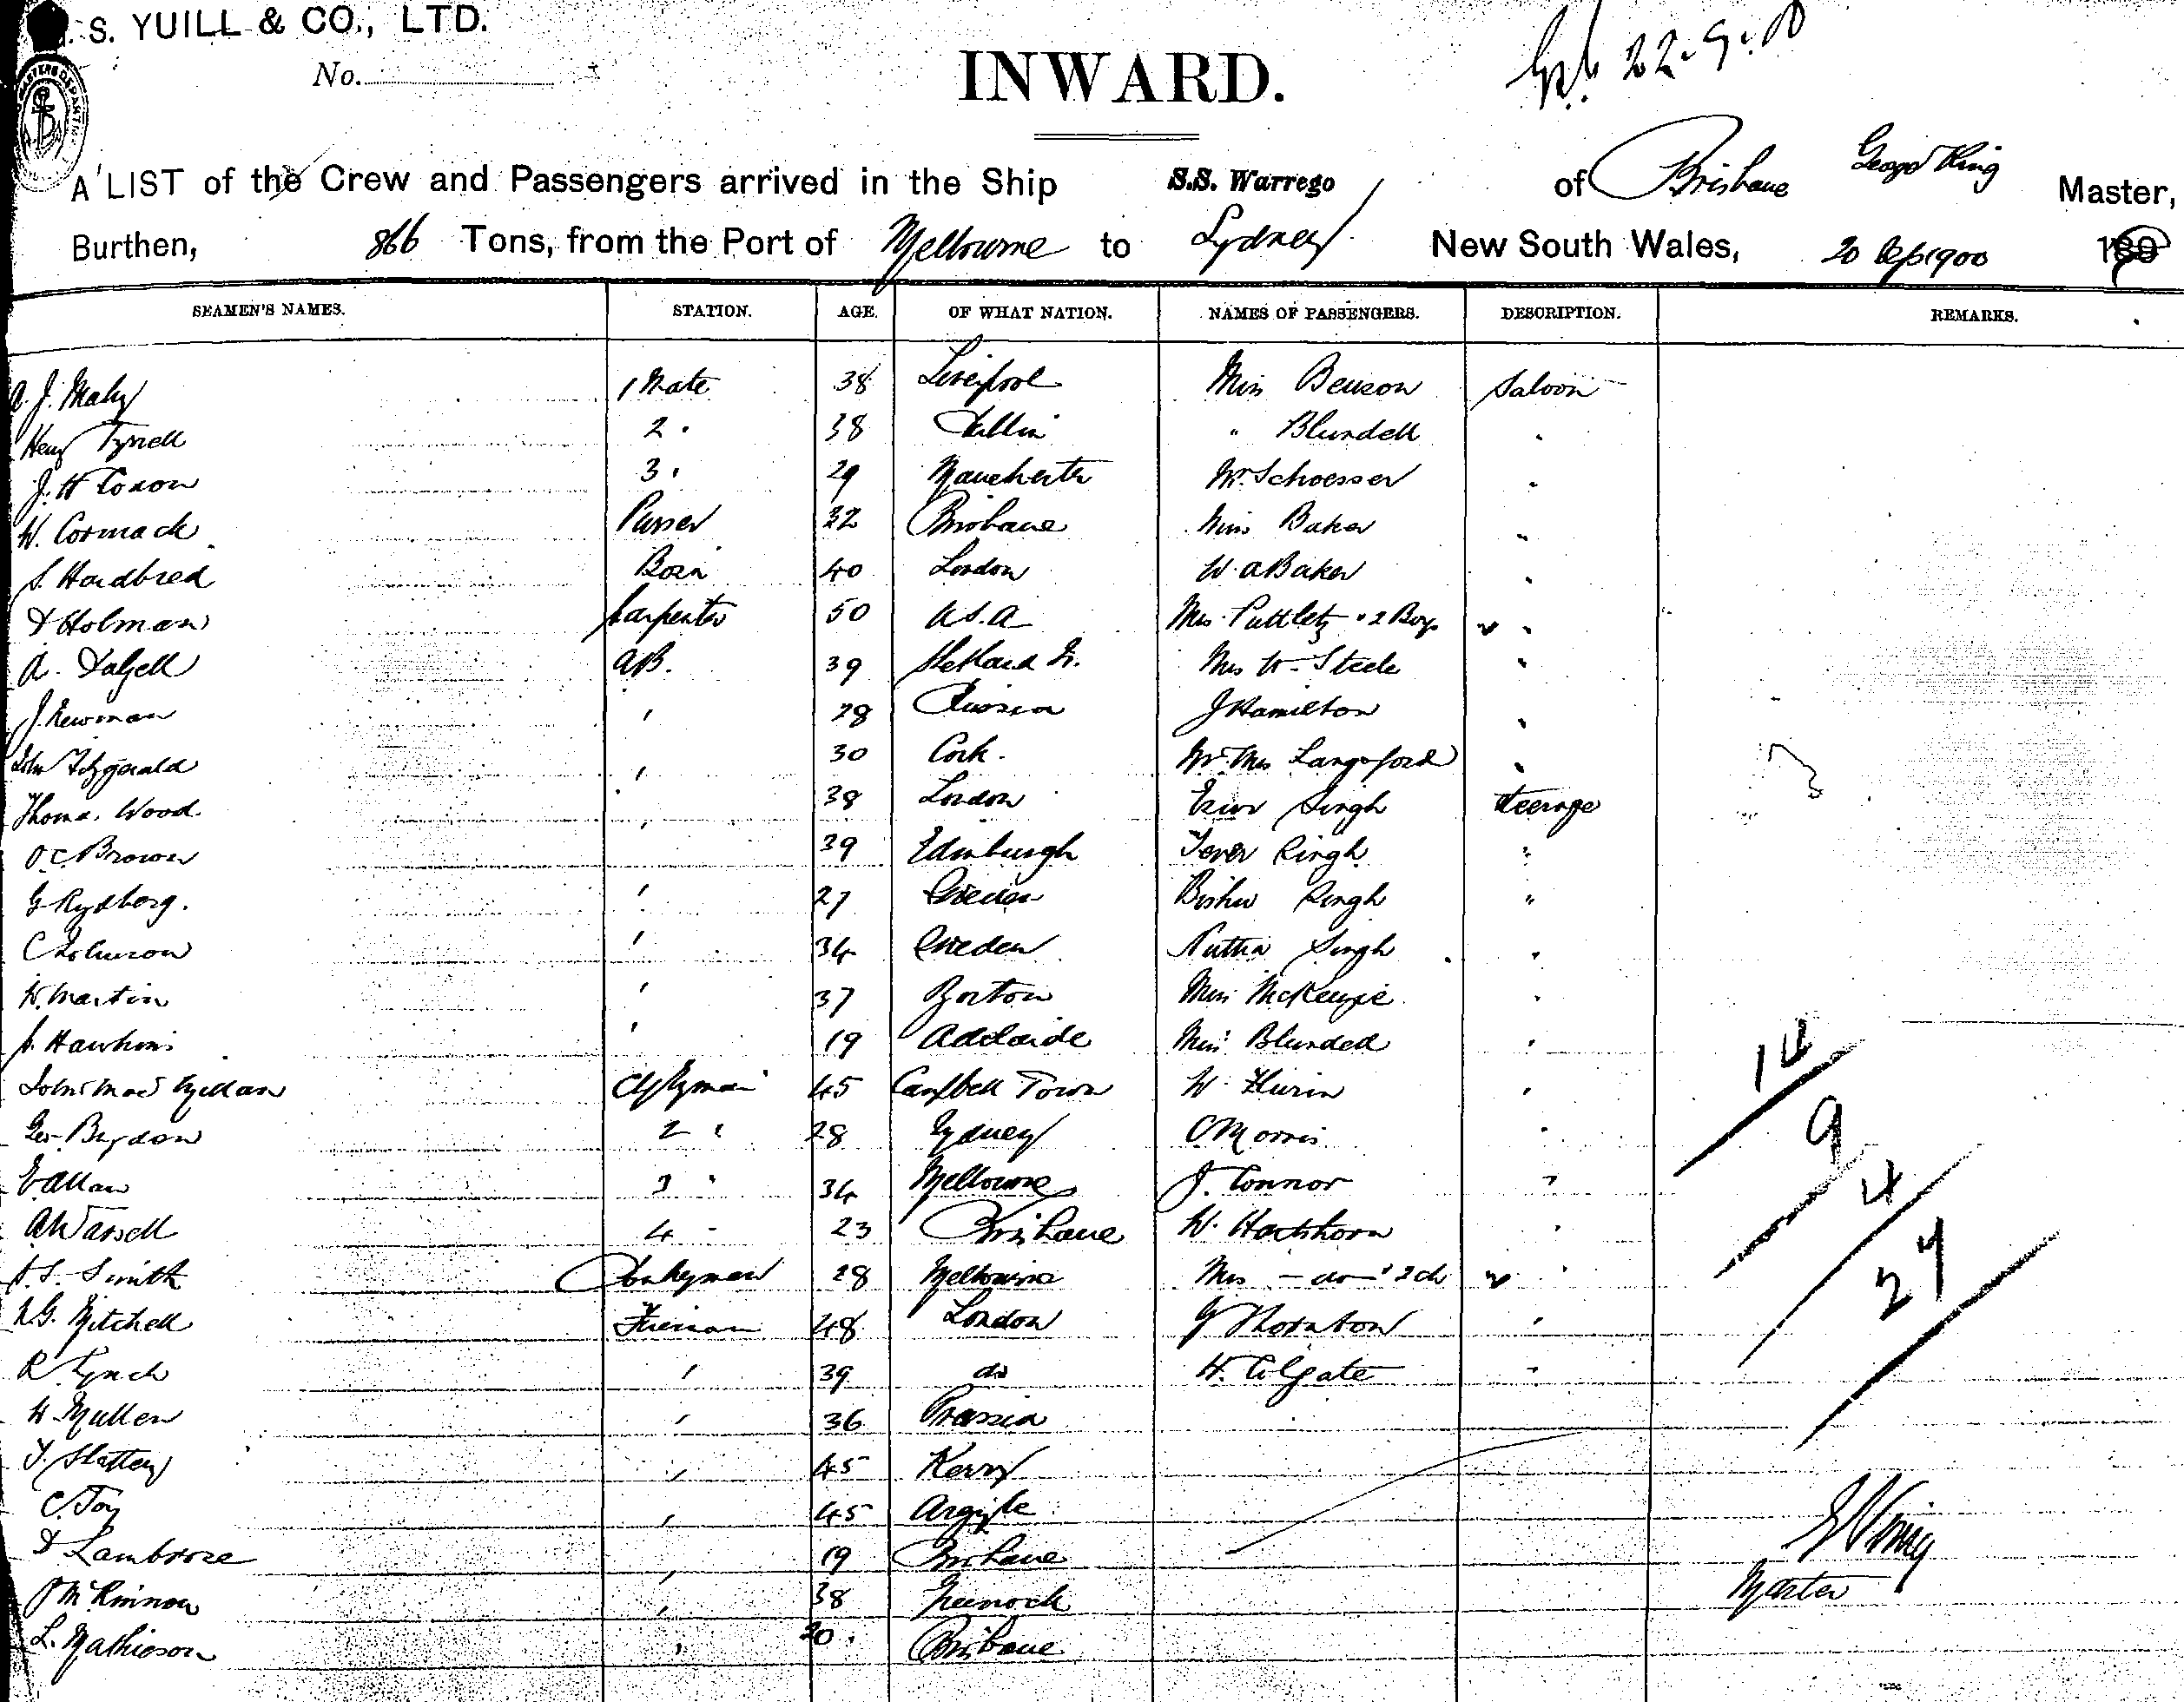 S. YUILL & CO., LTD.
No.
INWARD.
22.9.00
A LIST of the Crew and Passengers arrived in the Ship S.S. Warrego of Brisbane George King Master,
Burthen, 866 Tons, from the Port of Melbourne to Sydney New South Wales, 20 Sep 1900 189
SEAMEN'S NAMES. STATION. AGE. OF WHAT NATION. NAMES OF PASSENGERS. DESCRIPTION. REMARKS.
A. J. 1 Mate 38 Liverpool Miss Benson Saloon
Henry Tyrrell 2 " 38 Dublin " Blundell "
J. H Coxon 3 " 29 Manchester Mr. Schoesser "
W. Cormack Purser 32 Brisbane Miss Baker "
S. Hardbred Bosn 40 London W. A Baker "
Holman Carpenter 50 U.S.A Mrs 2 Boys "
A. Dalzell AB. 39 Shetland Is. Mrs W. Steele "
J. Newman " 28 Russia J Hamilton "
John Fitzgerald " 30 Cork. Mr Mrs Langsford "
Thomas Wood " 38 London Singh Steerage
O C Brown 39 Edinburgh Singh "
G Rydberg. " 27 Sweden Singh "
C Johnson " 34 Sweden Nuttha Singh "
W. Martin " 37 Boston Miss McKenzie "
J. Hawkins " 19 Adelaide Miss Blundell "
John 45 Campbell Town W. "
Geo Brydon 2 " 28 Sydney C Morris "
E Allan 3 " 34 Melbourne J. Connor "
A Wassell 4 " 23 Brisbane W. Hartshorn "
J. S. Smith Donkeyman 28 Melbourne Mrs — do — 2 ch "
Mitchell Fireman 48 London G Thornton "
R Lynch " 39 do H. Colgate "
H Mullen " 36 Prussia
T. Slattery " 45 Kerry
C. Joy " 45 Argyle
D Lambrose " 19 Brisbane
J McKinnon " 38 Greenock
L. Mathieson " 20 Brisbane
14
9
4
27
G King
Master